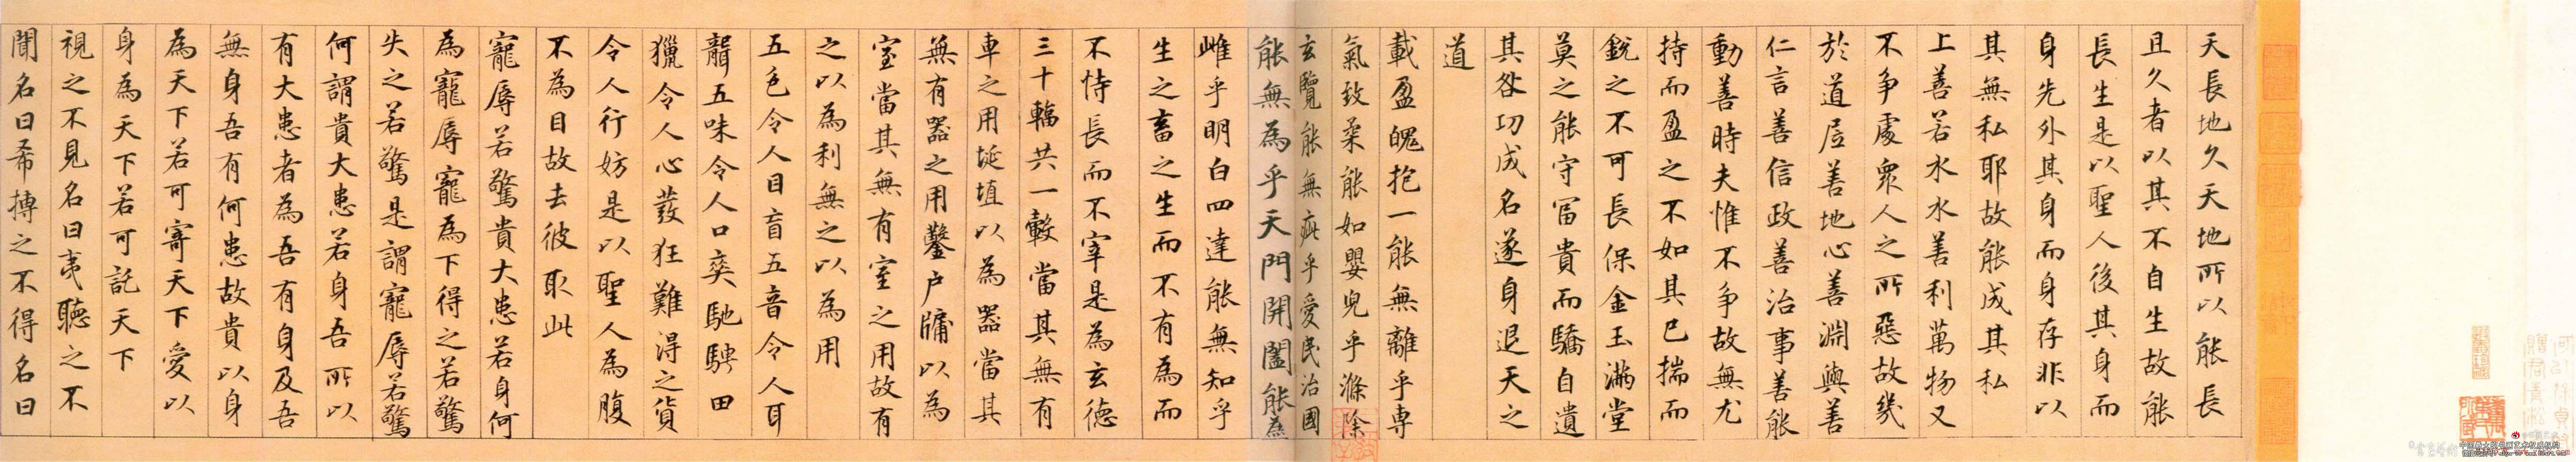 天長地久天地所以能長
且久者以其不自生故能
長生是以聖人後其身而
身先外其身而身存非以
其無私耶故能成其私
上善若水水善利萬物又
不争處衆人之所惡故幾
於道居善地心善淵與善
仁言善信政善治事善能
動善時夫惟不争故無尤
持而盈之不如其已揣而
銳之不可長保金玉滿堂
莫之能守富貴而驕自遺
其咎功成名遂身退天之
道
載盈魄抱一能無離乎専
氣致柔能如嬰兒乎滌除
玄覽能無疵乎愛民治國
能無為乎天門開闔能為
雌乎明白四達能無知乎
生之畜之生而不有為而
不恃長而不宰是為玄德
三十輻共一轂當其無有
車之用埏埴以為器當其
無有器之用鑿户牖以為
室當其無有室之用故有
之以為利無之以為用
五色令人目盲五音令人耳
聾五味令人口爽馳騁田
獵令人心發狂難得之貨
令人行妨是以聖人為腹
不為目故去彼取此
寵辱若驚貴大患若身何
為寵辱寵為下得之若驚
失之若驚是謂寵辱若驚
何謂貴大患若身吾所以
有大患者為吾有身及吾
無身吾有何患故貴以身
為天下若可寄天下愛以
身為天下若可託天下
視之不見名曰夷聽之不
聞名曰希搏之不得名曰